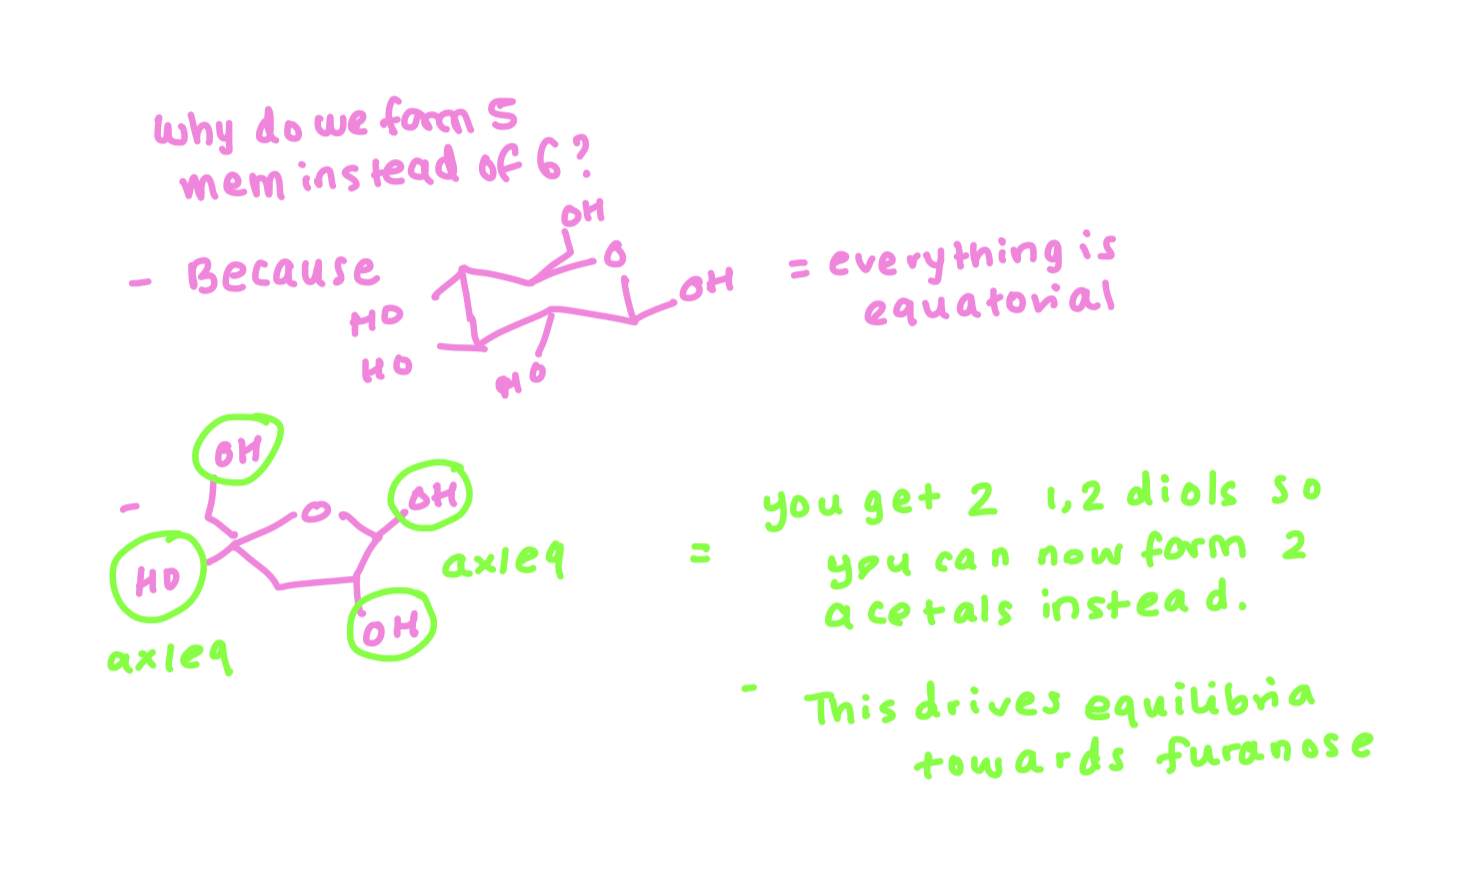 why do we form 5
mem instead of 6?
- Because
OH
O
OH
HO
HO
HO
= everything is
equatorial
-
OH
O
OH
HO
OH
ax/eq
ax/eq
= you get 2 1,2 diols so
you can now form 2
acetals instead.
- This drives equilibria
towards furanose